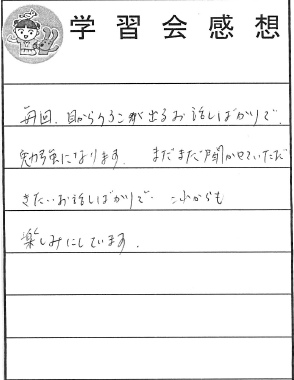 学習会感想
毎回、目からうろこが出るお話しばかりで、
勉強になります。 まだまだ聞かせていただ
きたいお話しばかりで、 これからも
楽しみにしています。